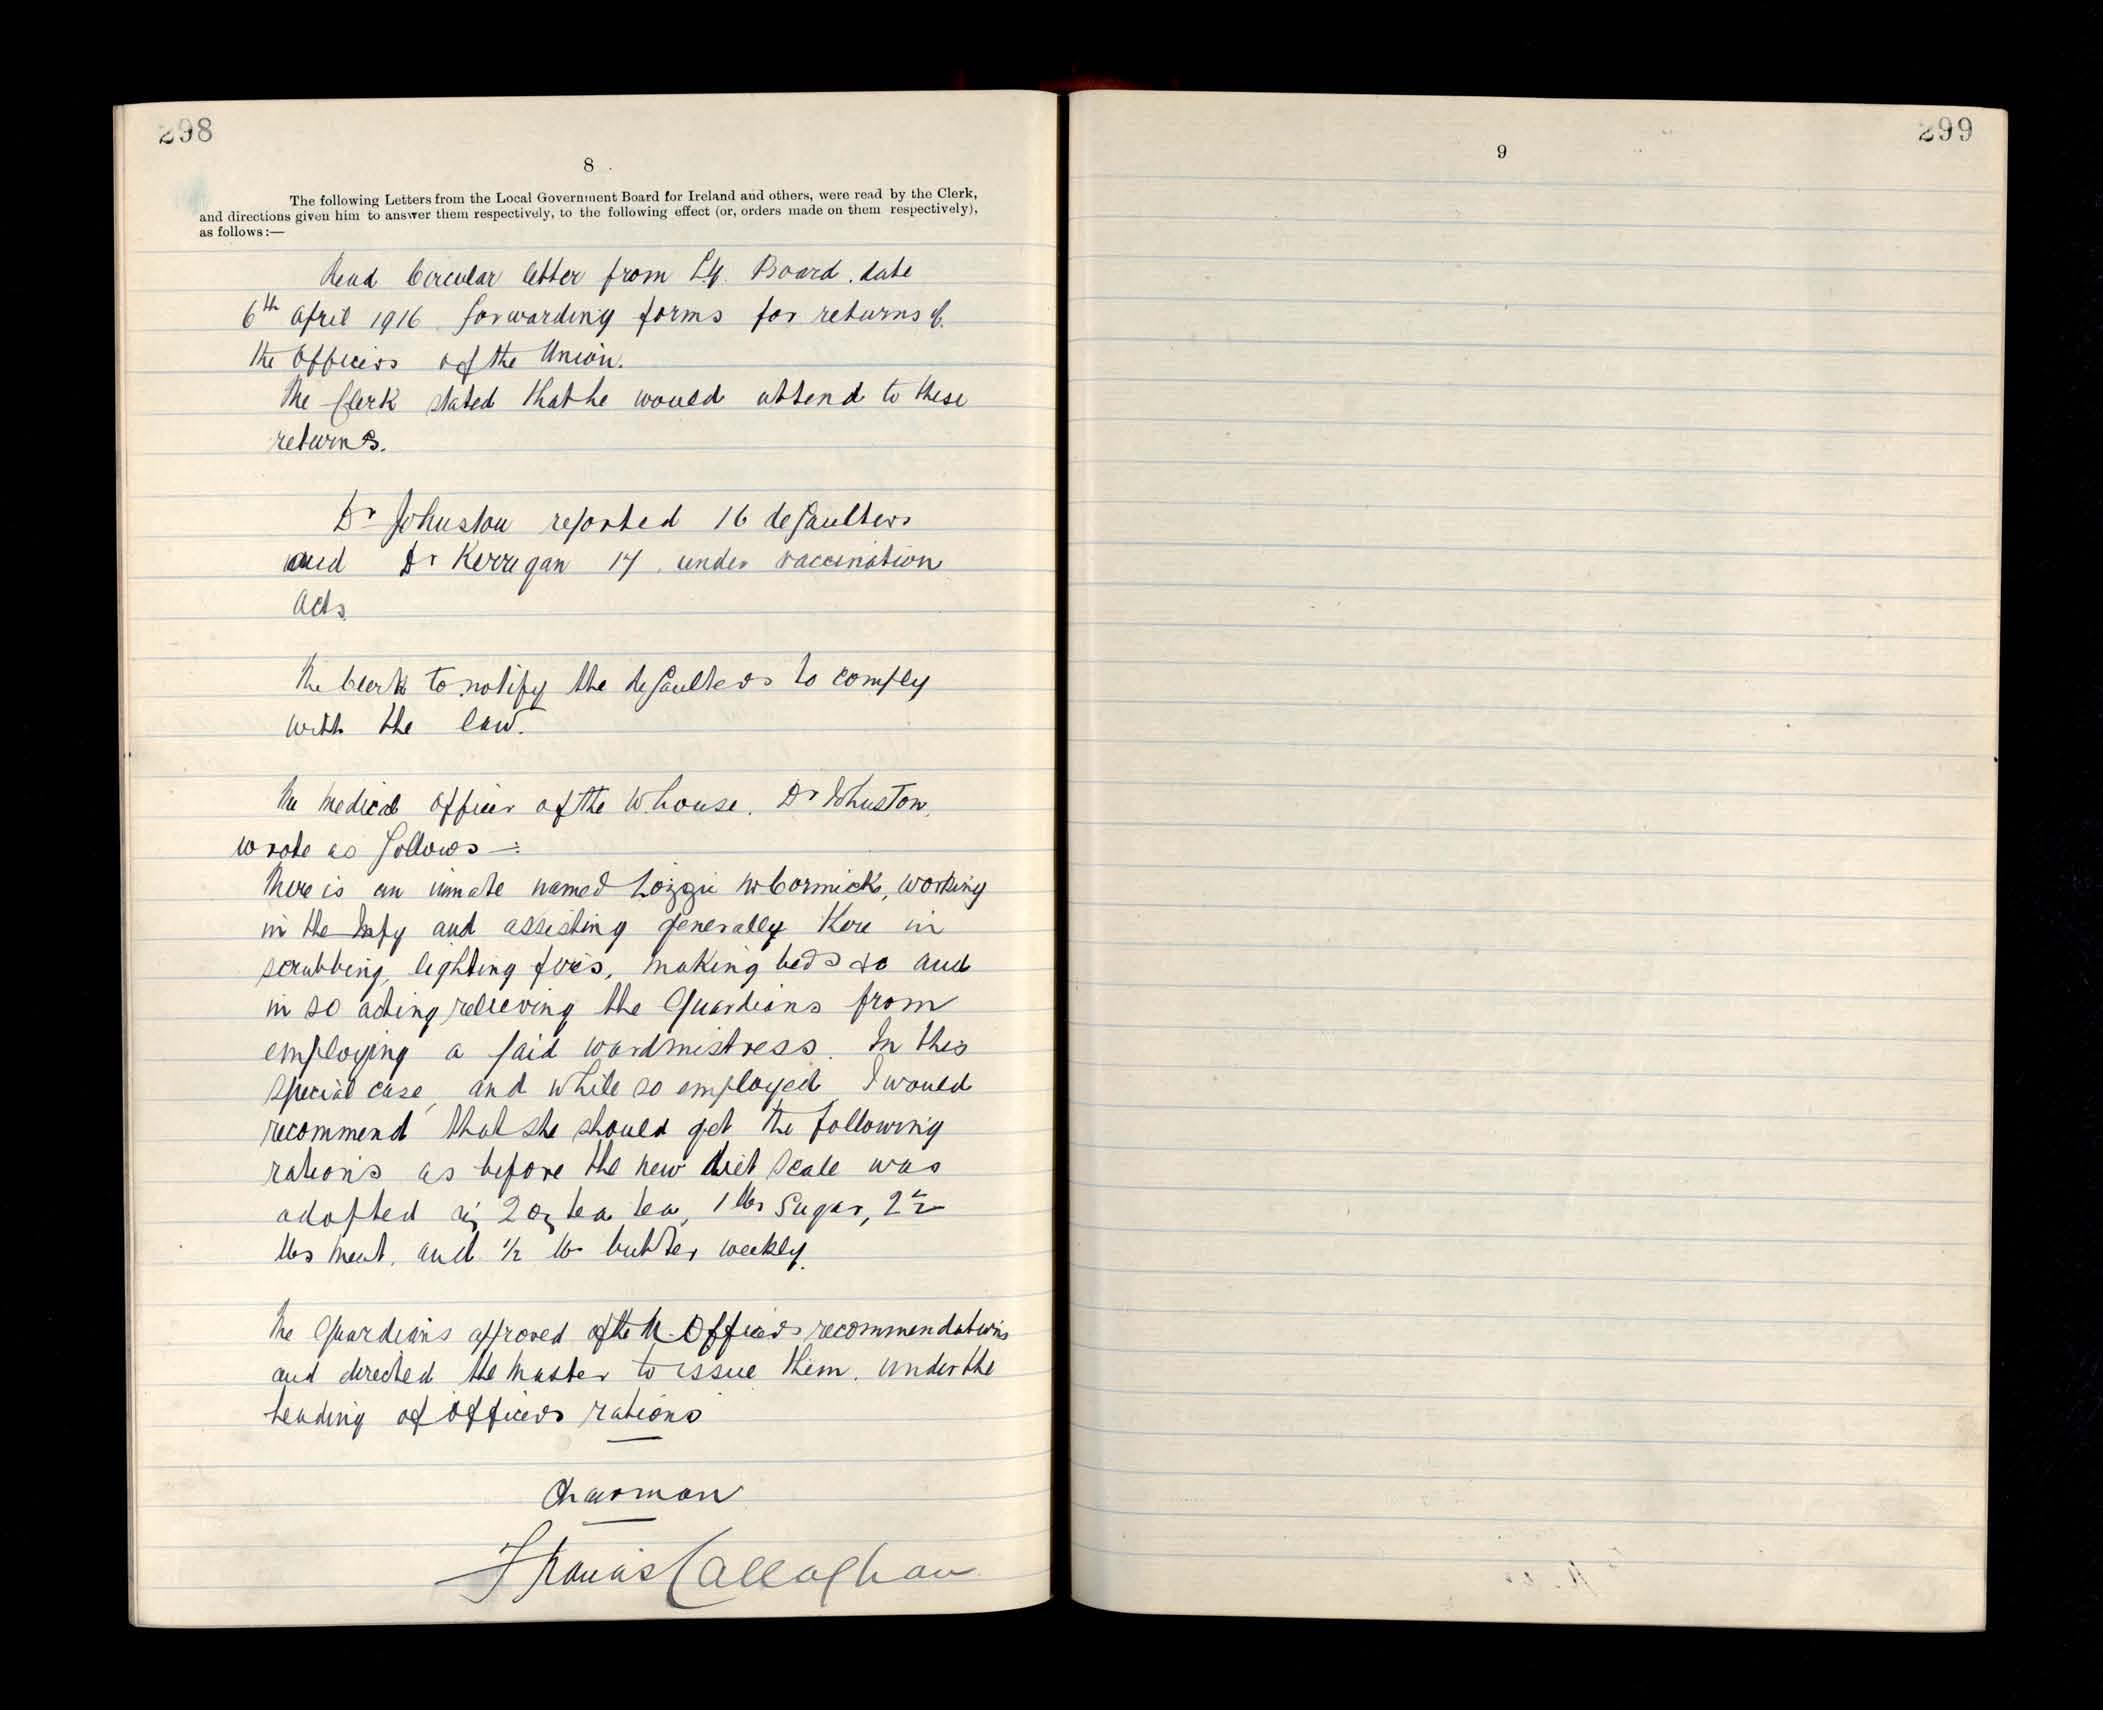 298
8
The following Letters from the Local Government Board for Ireland and others, were read by the Clerk,
and directions given him to answer them respectively, to the following effect (or, orders made on them respectively),
as follows:—
Read Circular letter from L.G. Board. date
6th April 1916 forwarding forms for returns of
the Officers of the Union.
The Clerk stated that he would attend to these
returns.
Dr Johnston reported 16 defaulters
and Dr Kerrigan 17 under vaccination
Acts
The Clerk to notify the defaulters to comply
with the law.
The Medical Officer of the W.house. Dr Johnston,
wrote as follows—:
There is an inmate named Lizzie McCormick, working
in the Infy and assisting generally there in
scrubbing, lighting fires, making beds &c and
in so acting relieving the Guardians from
employing a paid wardmistress. In this
special case, and while so employed I would
recommend that she should get the following
rations as before the new diet scale was
adopted viz 2 oz tea tea, 1 lbs Sugar, 2½
lbs meat. and ½ lb butter weekly.
The Guardians approved of the M. Officers recommendations
and directed the Master to issue them. under the
heading of Officers rations
Chairman
Francis Callaghan
299
9